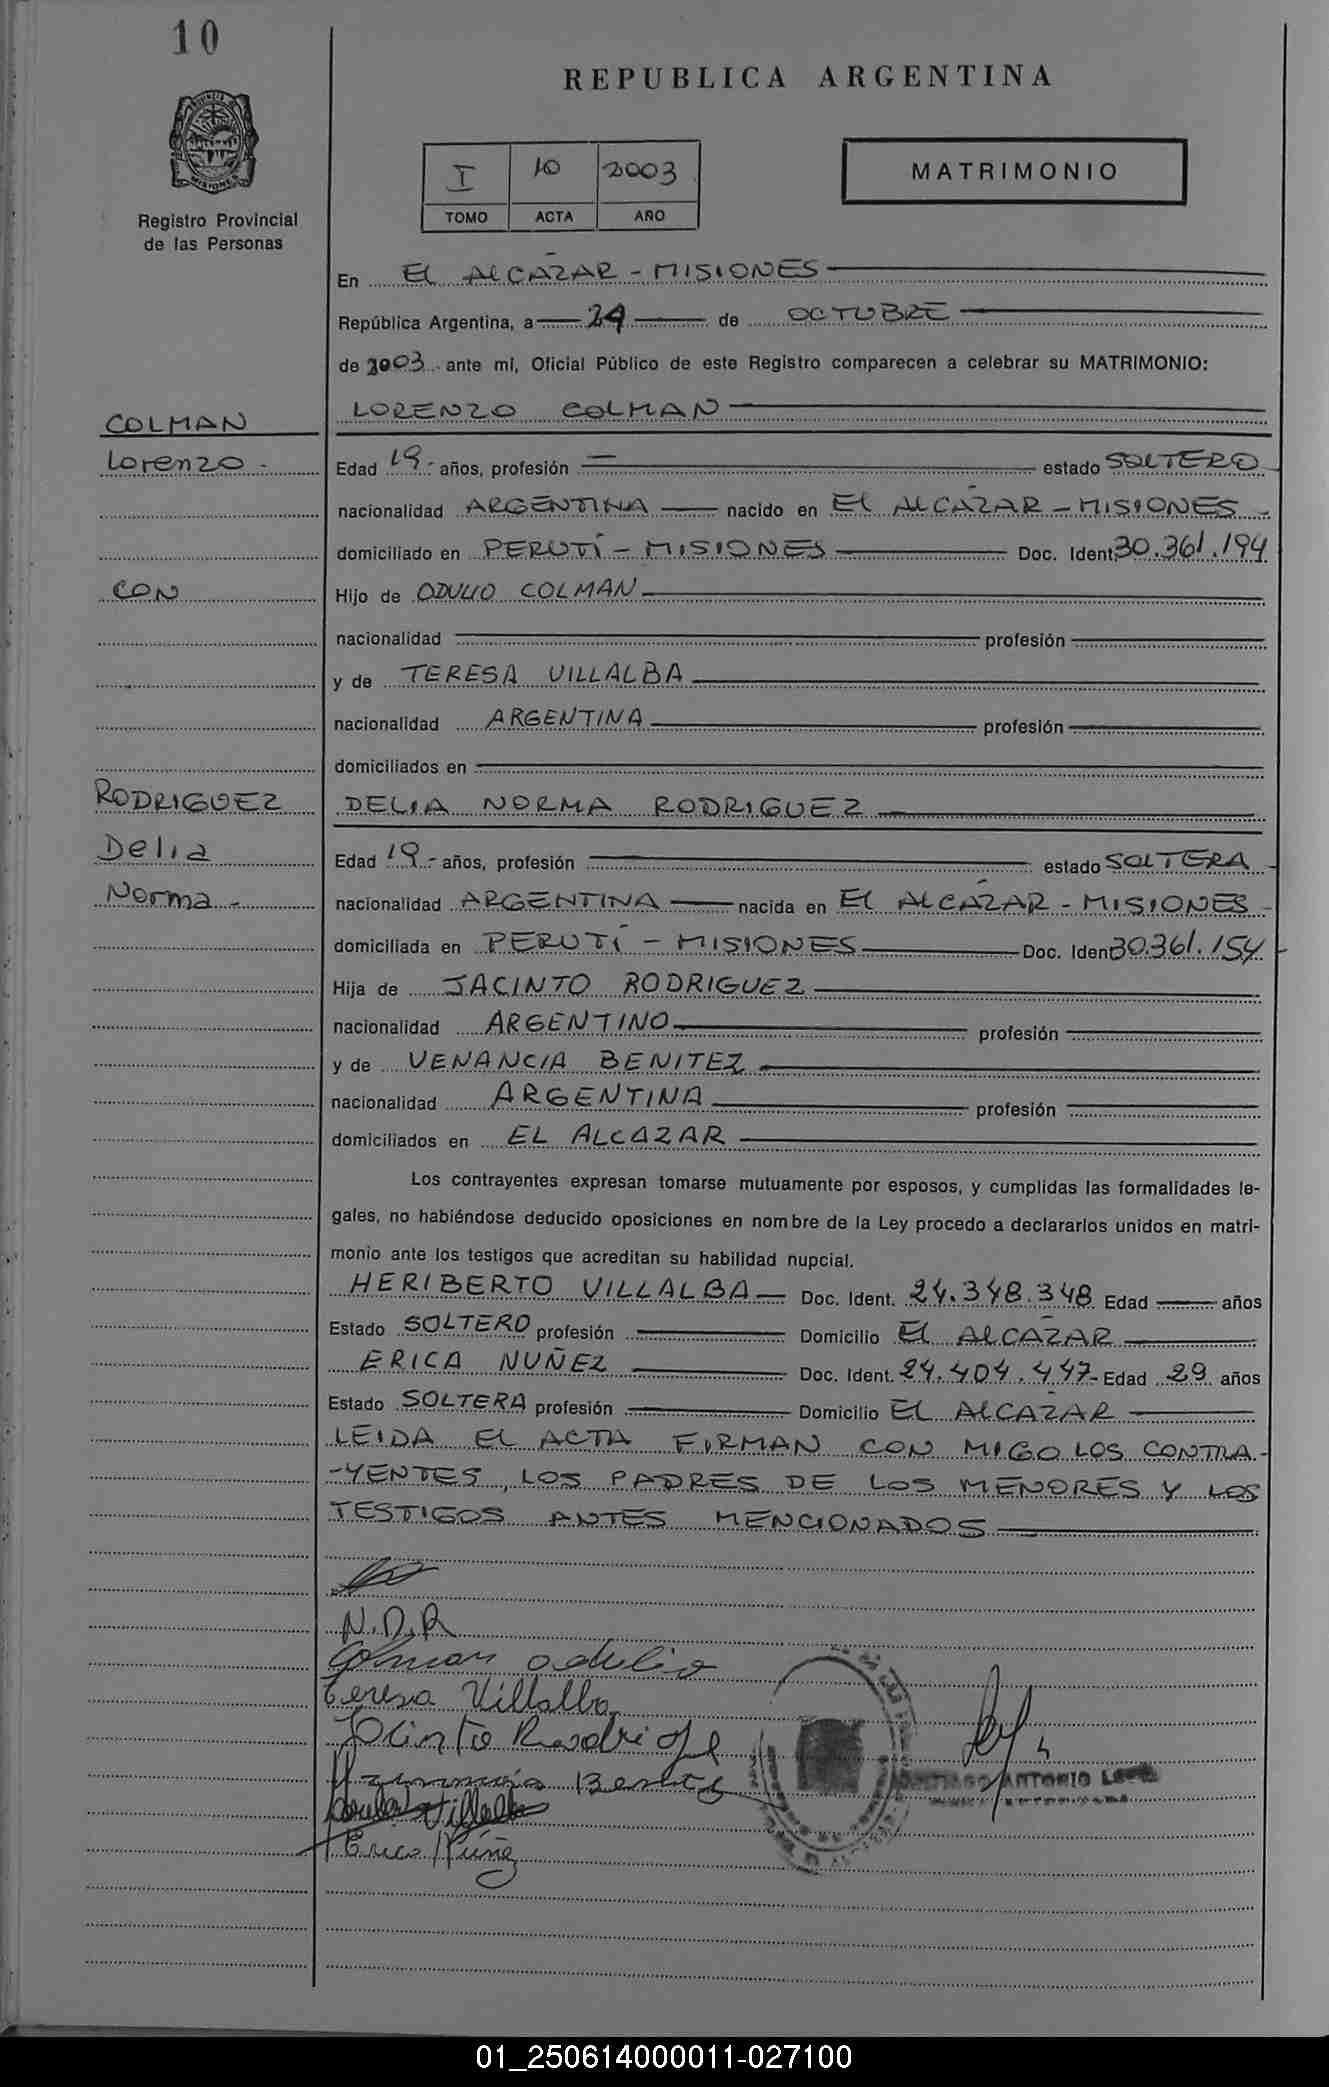 10
REPUBLICA ARGENTINA
I 10 2003
TOMO ACTA AÑO
MATRIMONIO
Registro Provincial
de las Personas
En EL ALCAZAR - MISIONES
República Argentina, a 24 de OCTUBRE
de 2003 ante mí, Oficial Público de este Registro comparecen a celebrar su MATRIMONIO:
COLMAN
LORENZO COLMAN
Lorenzo -
Edad 19 - años, profesión — estado SOLTERO
nacionalidad ARGENTINA nacido en EL ALCAZAR - MISIONES -
domiciliado en PERUTÍ - MISIONES Doc. Ident. 30.361.194
CON
Hijo de ODULIO COLMAN
nacionalidad profesión
y de TERESA VILLALBA
nacionalidad ARGENTINA profesión
domiciliados en
RODRIGUEZ
DELIA NORMA RODRIGUEZ
Delia
Edad 19 - años, profesión estado SOLTERA -
Norma -
nacionalidad ARGENTINA nacida en EL ALCAZAR - MISIONES -
domiciliada en PERUTÍ - MISIONES Doc. Iden 30.361.154 -
Hija de JACINTO RODRIGUEZ
nacionalidad ARGENTINO profesión
y de VENANCIA BENITEZ
nacionalidad ARGENTINA profesión
domiciliados en EL ALCAZAR
Los contrayentes expresan tomarse mutuamente por esposos, y cumplidas las formalidades le-
gales, no habiéndose deducido oposiciones en nombre de la Ley procedo a declararlos unidos en matri-
monio ante los testigos que acreditan su habilidad nupcial.
HERIBERTO VILLALBA Doc. Ident. 24.348.348 Edad años
Estado SOLTERO profesión Domicilio EL ALCAZAR
ERICA NUÑEZ Doc. Ident. 24.404.447 - Edad 29 años
Estado SOLTERA profesión Domicilio EL ALCAZAR
LEIDA EL ACTA FIRMAN CON MIGO LOS CONTRA-
-YENTES, LOS PADRES DE LOS MENORES Y LOS
TESTIGOS ANTES MENCIONADOS
N.D.R
Colman odulio
Teresa Villalba
Villalba
Erica Núñez
ANTONIO
01_250614000011-027100